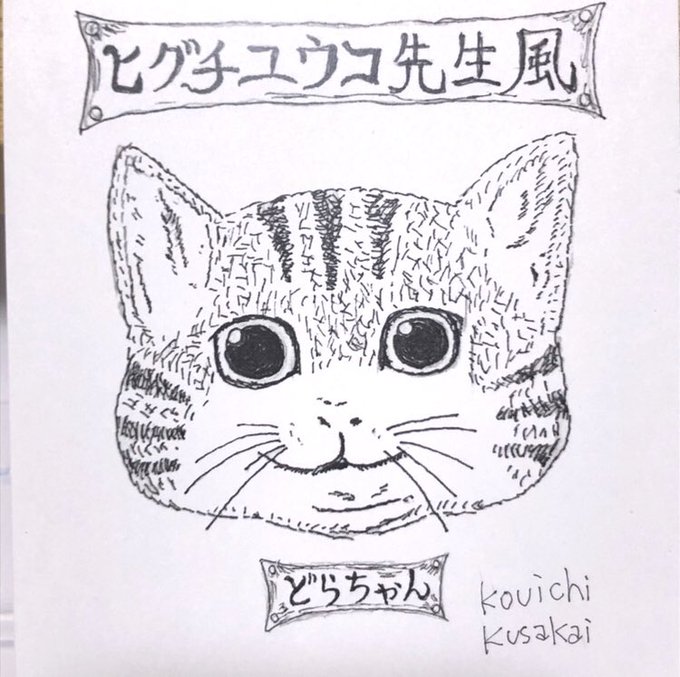 ヒグチユウコ先生風
どらちゃん
kouichi
kusakai